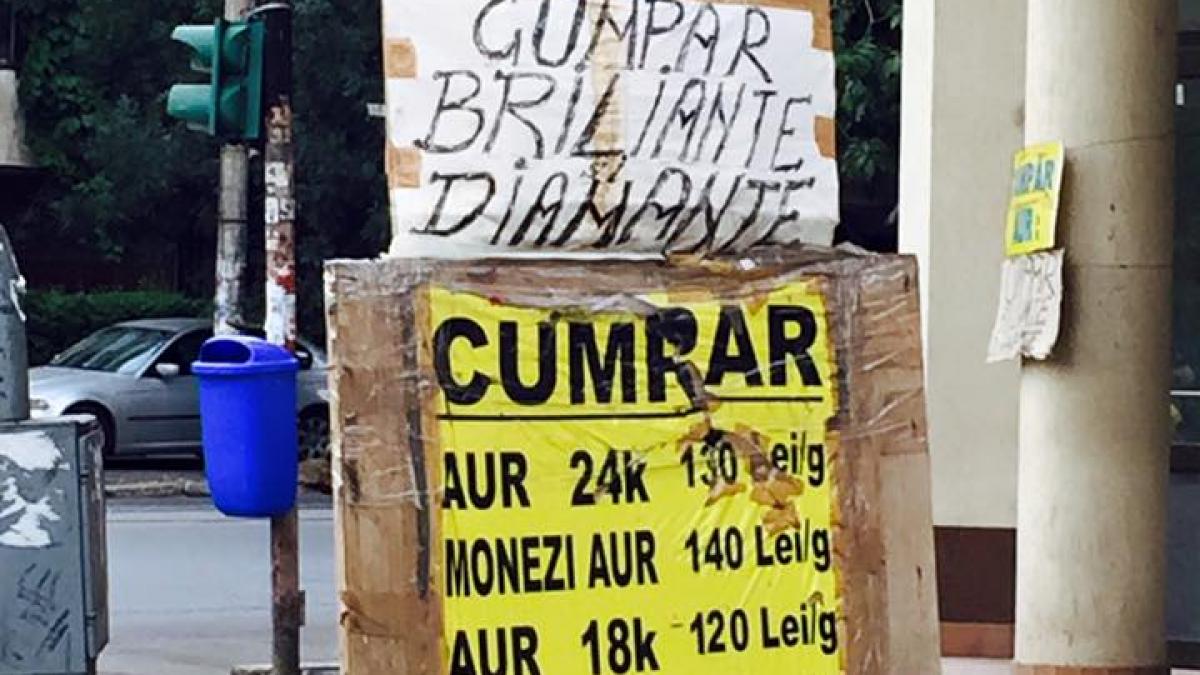 CUMPAR
BRILIANTE
DIAMANTE
CUMPAR
AUR 24k 130 Lei/g
MONEZI AUR 140 Lei/g
AUR 18k 120 Lei/g
CUMPĂR
AUR